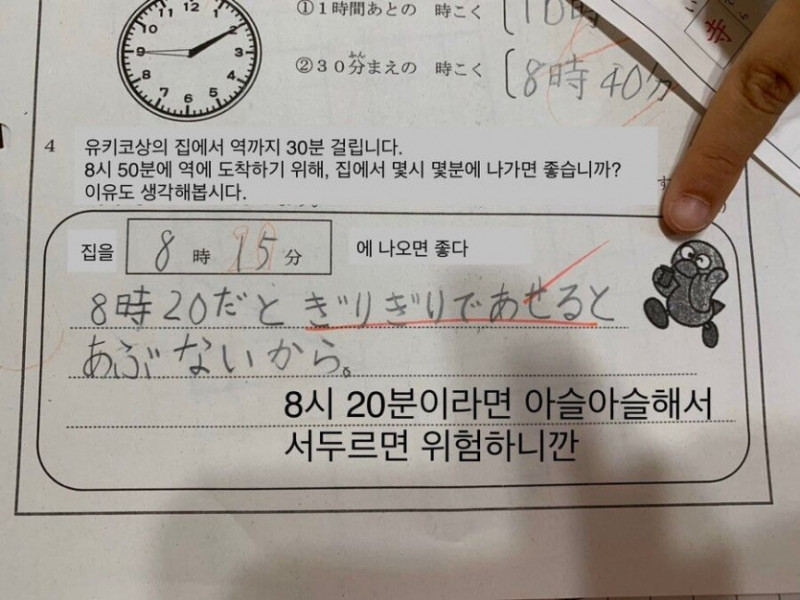 11 12 1
10 2
9 3
8 4
7 6 5
①1時間あとの 時こく 10時
②30分まえの 時こく 8時40分
4
유키코상의 집에서 역까지 30분 걸립니다.
8시 50분에 역에 도착하기 위해, 집에서 몇시 몇분에 나가면 좋습니까?
이유도 생각해봅시다.
집을 8時15分 에 나오면 좋다
8時20だとぎりぎりであせると
あぶないから。
8시 20분이라면 아슬아슬해서
서두르면 위험하니깐